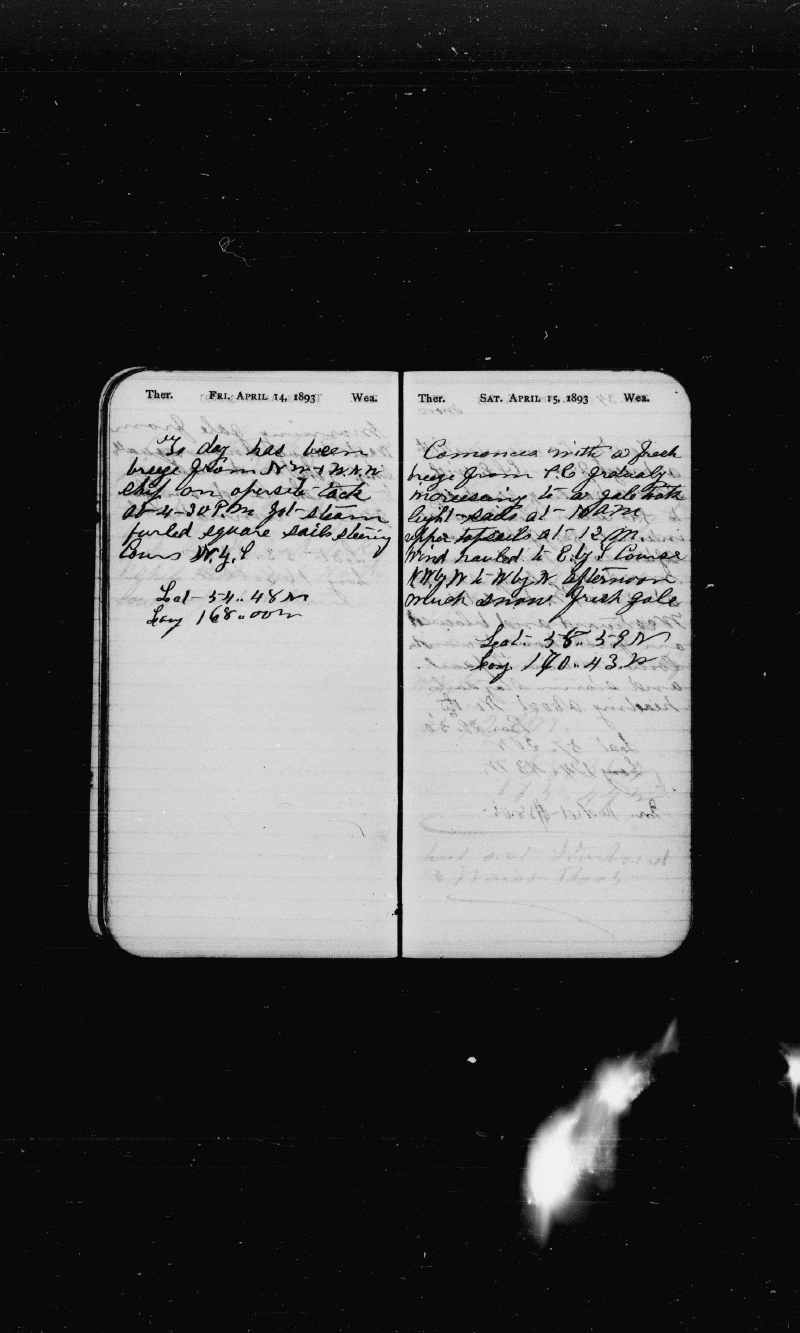 Ther. FRI. APRIL 14, 1893 Wea.
To day has been
breeze from N W & W.N.W
Ship on opersite tack
at 4-30 P.M. got steam
furled square sails stering
Cours W.
Lat 54.. 48 N
Long 168.. 00 W
Ther. SAT. APRIL 15, 1893 Wea.
Comences with a fresh
breeze from gradualy
increseing to a gale took
light sails at 10 AM
upper topsails at 12 M.
Wind hauled to E. by S Course
N W by W to W by N afternoon
much snow fresh gale
Lat 5 .. 59 N
Long 170.. 43. W